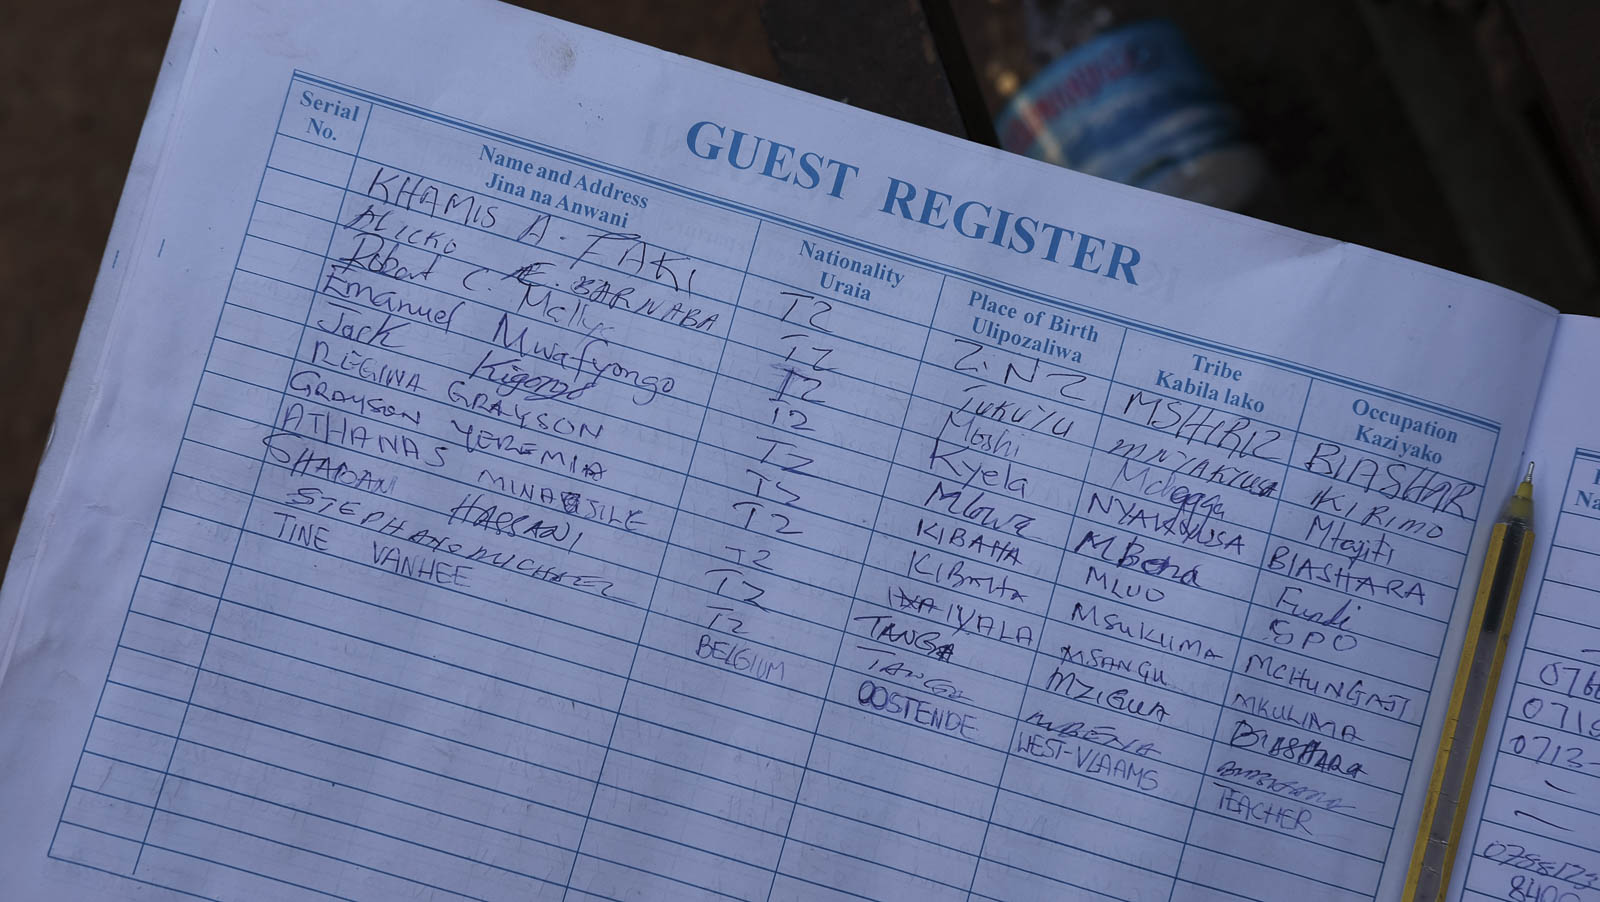 GUEST REGISTER
Serial No.
Name and Address
Jina na Anwani
Nationality
Uraia
Place of Birth
Ulipozaliwa
Tribe
Kabila lako
Occupation
Kazi yako
KHAMIS A. FAKI TZ ZiNZ MSHIRIZ BIASHAR
ALICKO E. BARNABA TZ TUKUYU MNYAKYUSA
Robert C. Mallya TZ Moshi Mtajiti
Emanuel Mwafyongo TZ Kyela NYAKYUSA BIASHARA
Jack Kigongo TZ MBena Fundi
REGINA GRAYSON TZ KIBAHA MLUO SPO
GRAYSON YEREMIA TZ KIBAHA MSUKUMA MCHUNGAJI
ATHANAS MINASILE TZ IYALA MSANGU MKULIMA
SHABAN HASSANI TZ TANGA MZIGUA BIASHARA
STEPHANO MICHAEL TZ TANGA MBENA
TINE VANHEE BELGIUM OOSTENDE WEST-VLAAMS TEACHER
0719
0713-